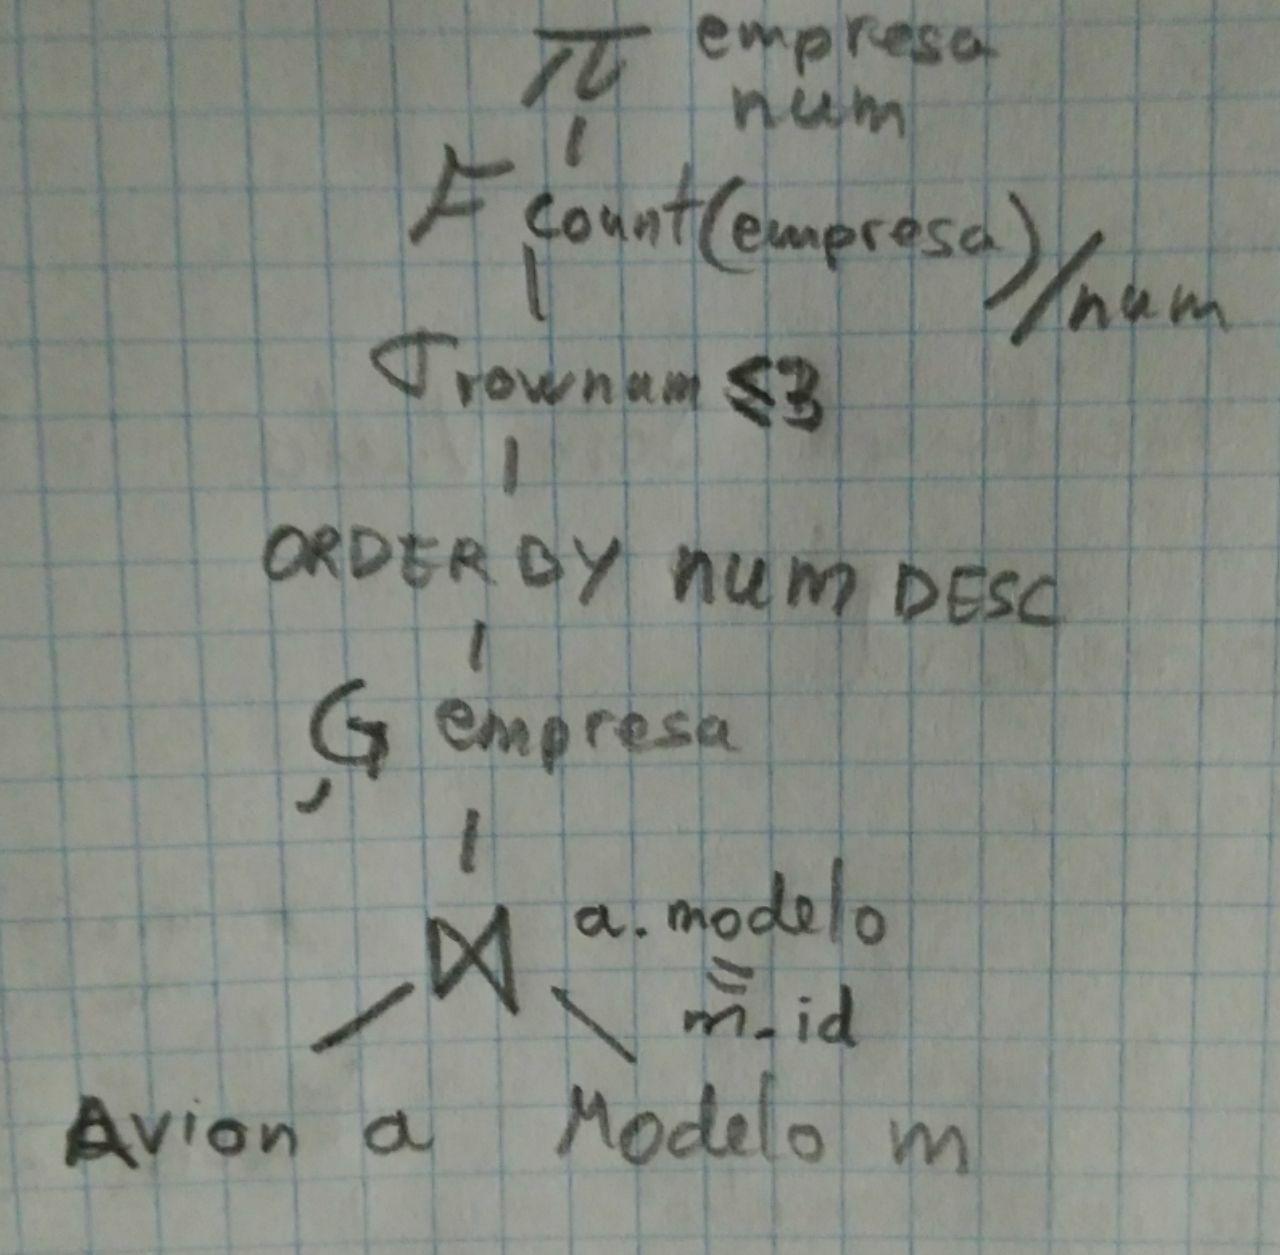 π empresa
num
F count(empresa)/num
σ rownum ≤3
ORDER BY num DESC
G empresa
⋈ a.modelo
=
m.id
Avion a Modelo m